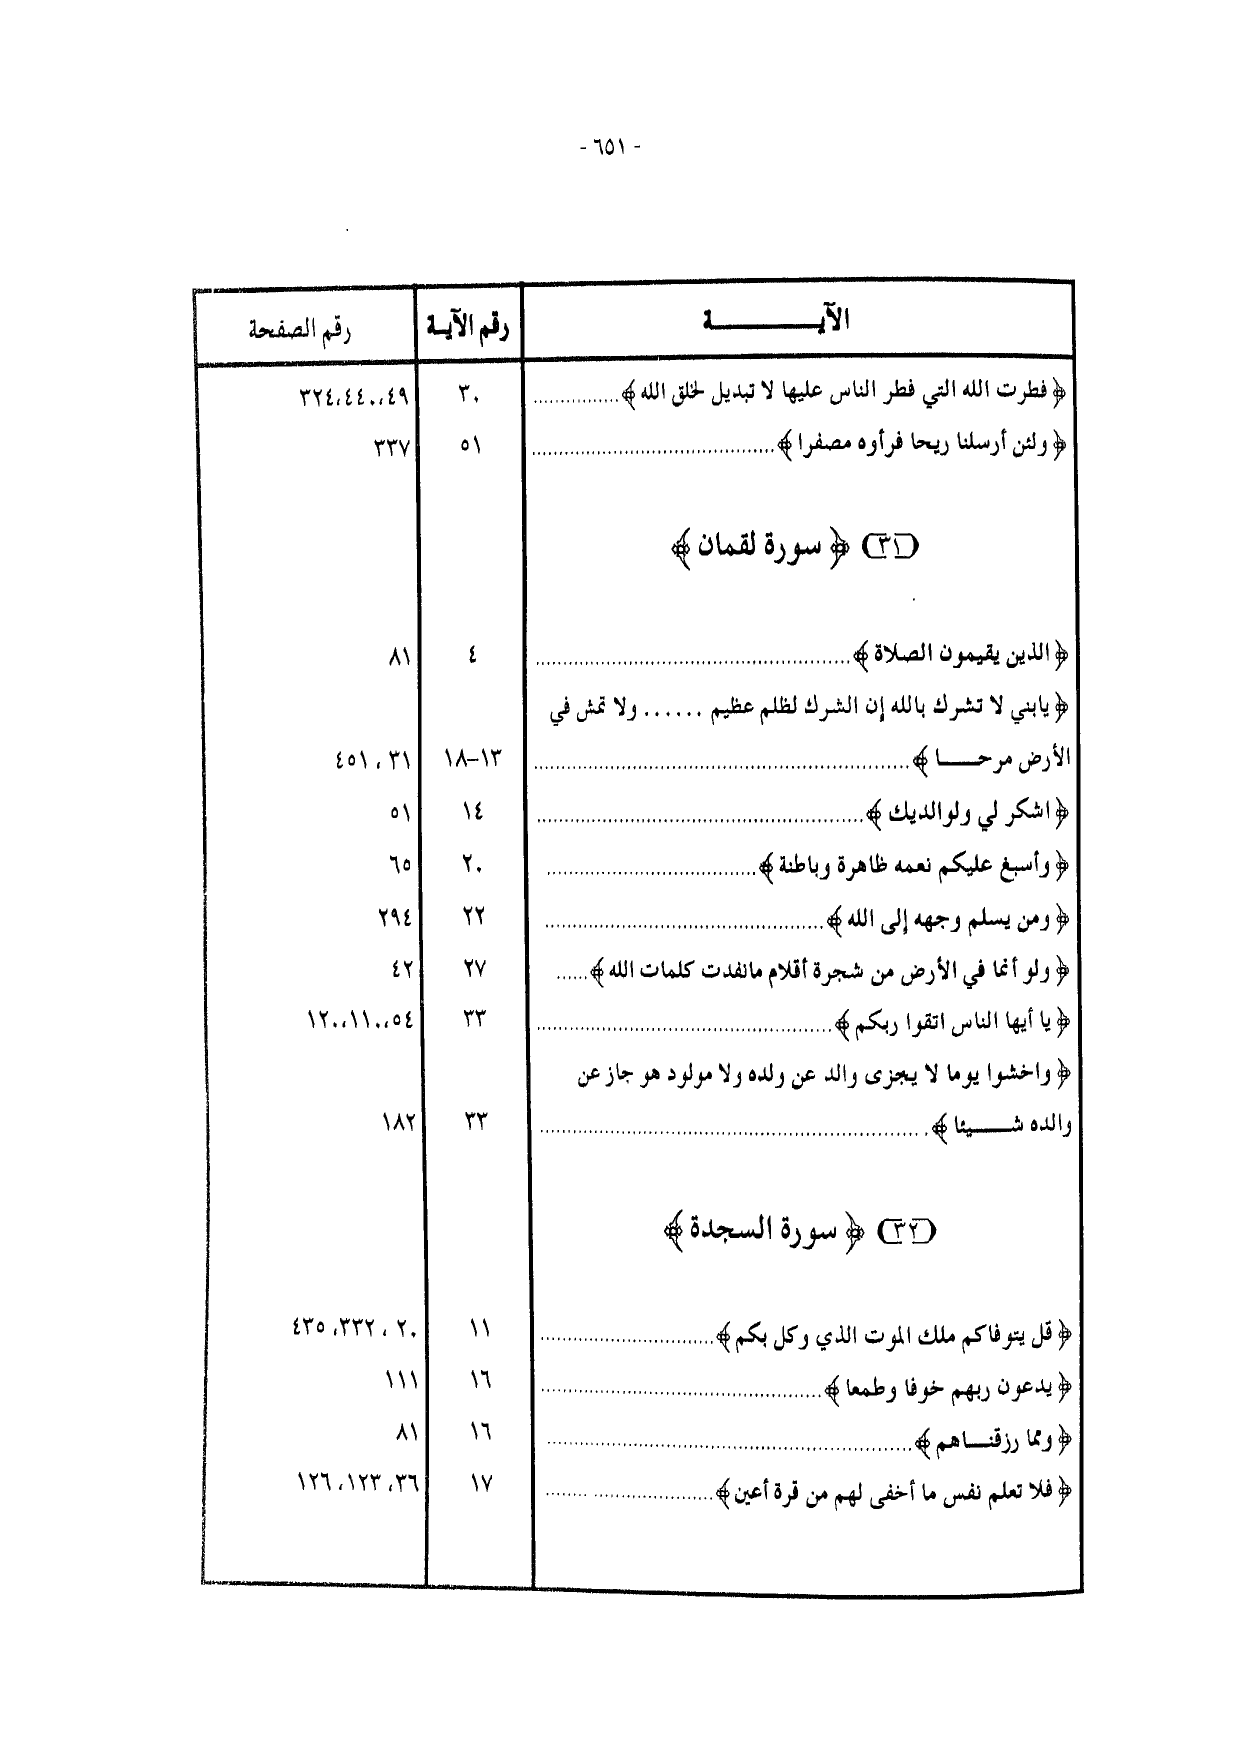 - ٦٥١ -
الآيـــــــة رقم الآيـة رقم الصفحة
﴿ فطرت الله التي فطر الناس عليها لا تبديل لخلق الله ﴾................ ٣٠ ٤٩،٤٤٠،٣٢٤
﴿ ولئن أرسلنا ريحا فرأوه مصفرا ﴾............................................. ٥١ ٣٣٧
(٣١) ﴿ سورة لقمان ﴾
﴿ الذين يقيمون الصلاة ﴾.......................................................... ٤ ٨١
﴿ يابني لا تشرك بالله إن الشرك لظلم عظيم ...... ولا تمش في
الأرض مرحـــــا ﴾...................................................................... ١٣–١٨ ٣١ ، ٤٥١
﴿ اشكر لي ولوالديك ﴾............................................................. ١٤ ٥١
﴿ وأسبغ عليكم نعمه ظاهرة وباطنة ﴾....................................... ٢٠ ٦٥
﴿ ومن يسلم وجهه إلى الله ﴾.................................................... ٢٢ ٢٩٤
﴿ ولو أنما في الأرض من شجرة أقلام مانفدت كلمات الله ﴾...... ٢٧ ٤٢
﴿ يا أيها الناس اتقوا ربكم ﴾...................................................... ٣٣ ٥٤،١١٠،١٢٠
﴿ واخشوا يوما لا يجزى والد عن ولده ولا مولود هو جاز عن
والده شـــــيئا ﴾......................................................................... ٣٣ ١٨٢
(٣٢) ﴿ سورة السجدة ﴾
﴿ قل يتوفاكم ملك الموت الذي وكل بكم ﴾................................ ١١ ٢٠ ، ٣٣٢، ٤٣٥
﴿ يدعون ربهم خوفا وطمعا ﴾.................................................... ١٦ ١١١
﴿ ومما رزقنـــاهم ﴾.................................................................... ١٦ ٨١
﴿ فلا تعلم نفس ما أخفى لهم من قرة أعين ﴾............................. ١٧ ٣٦، ١٢٣، ١٢٦